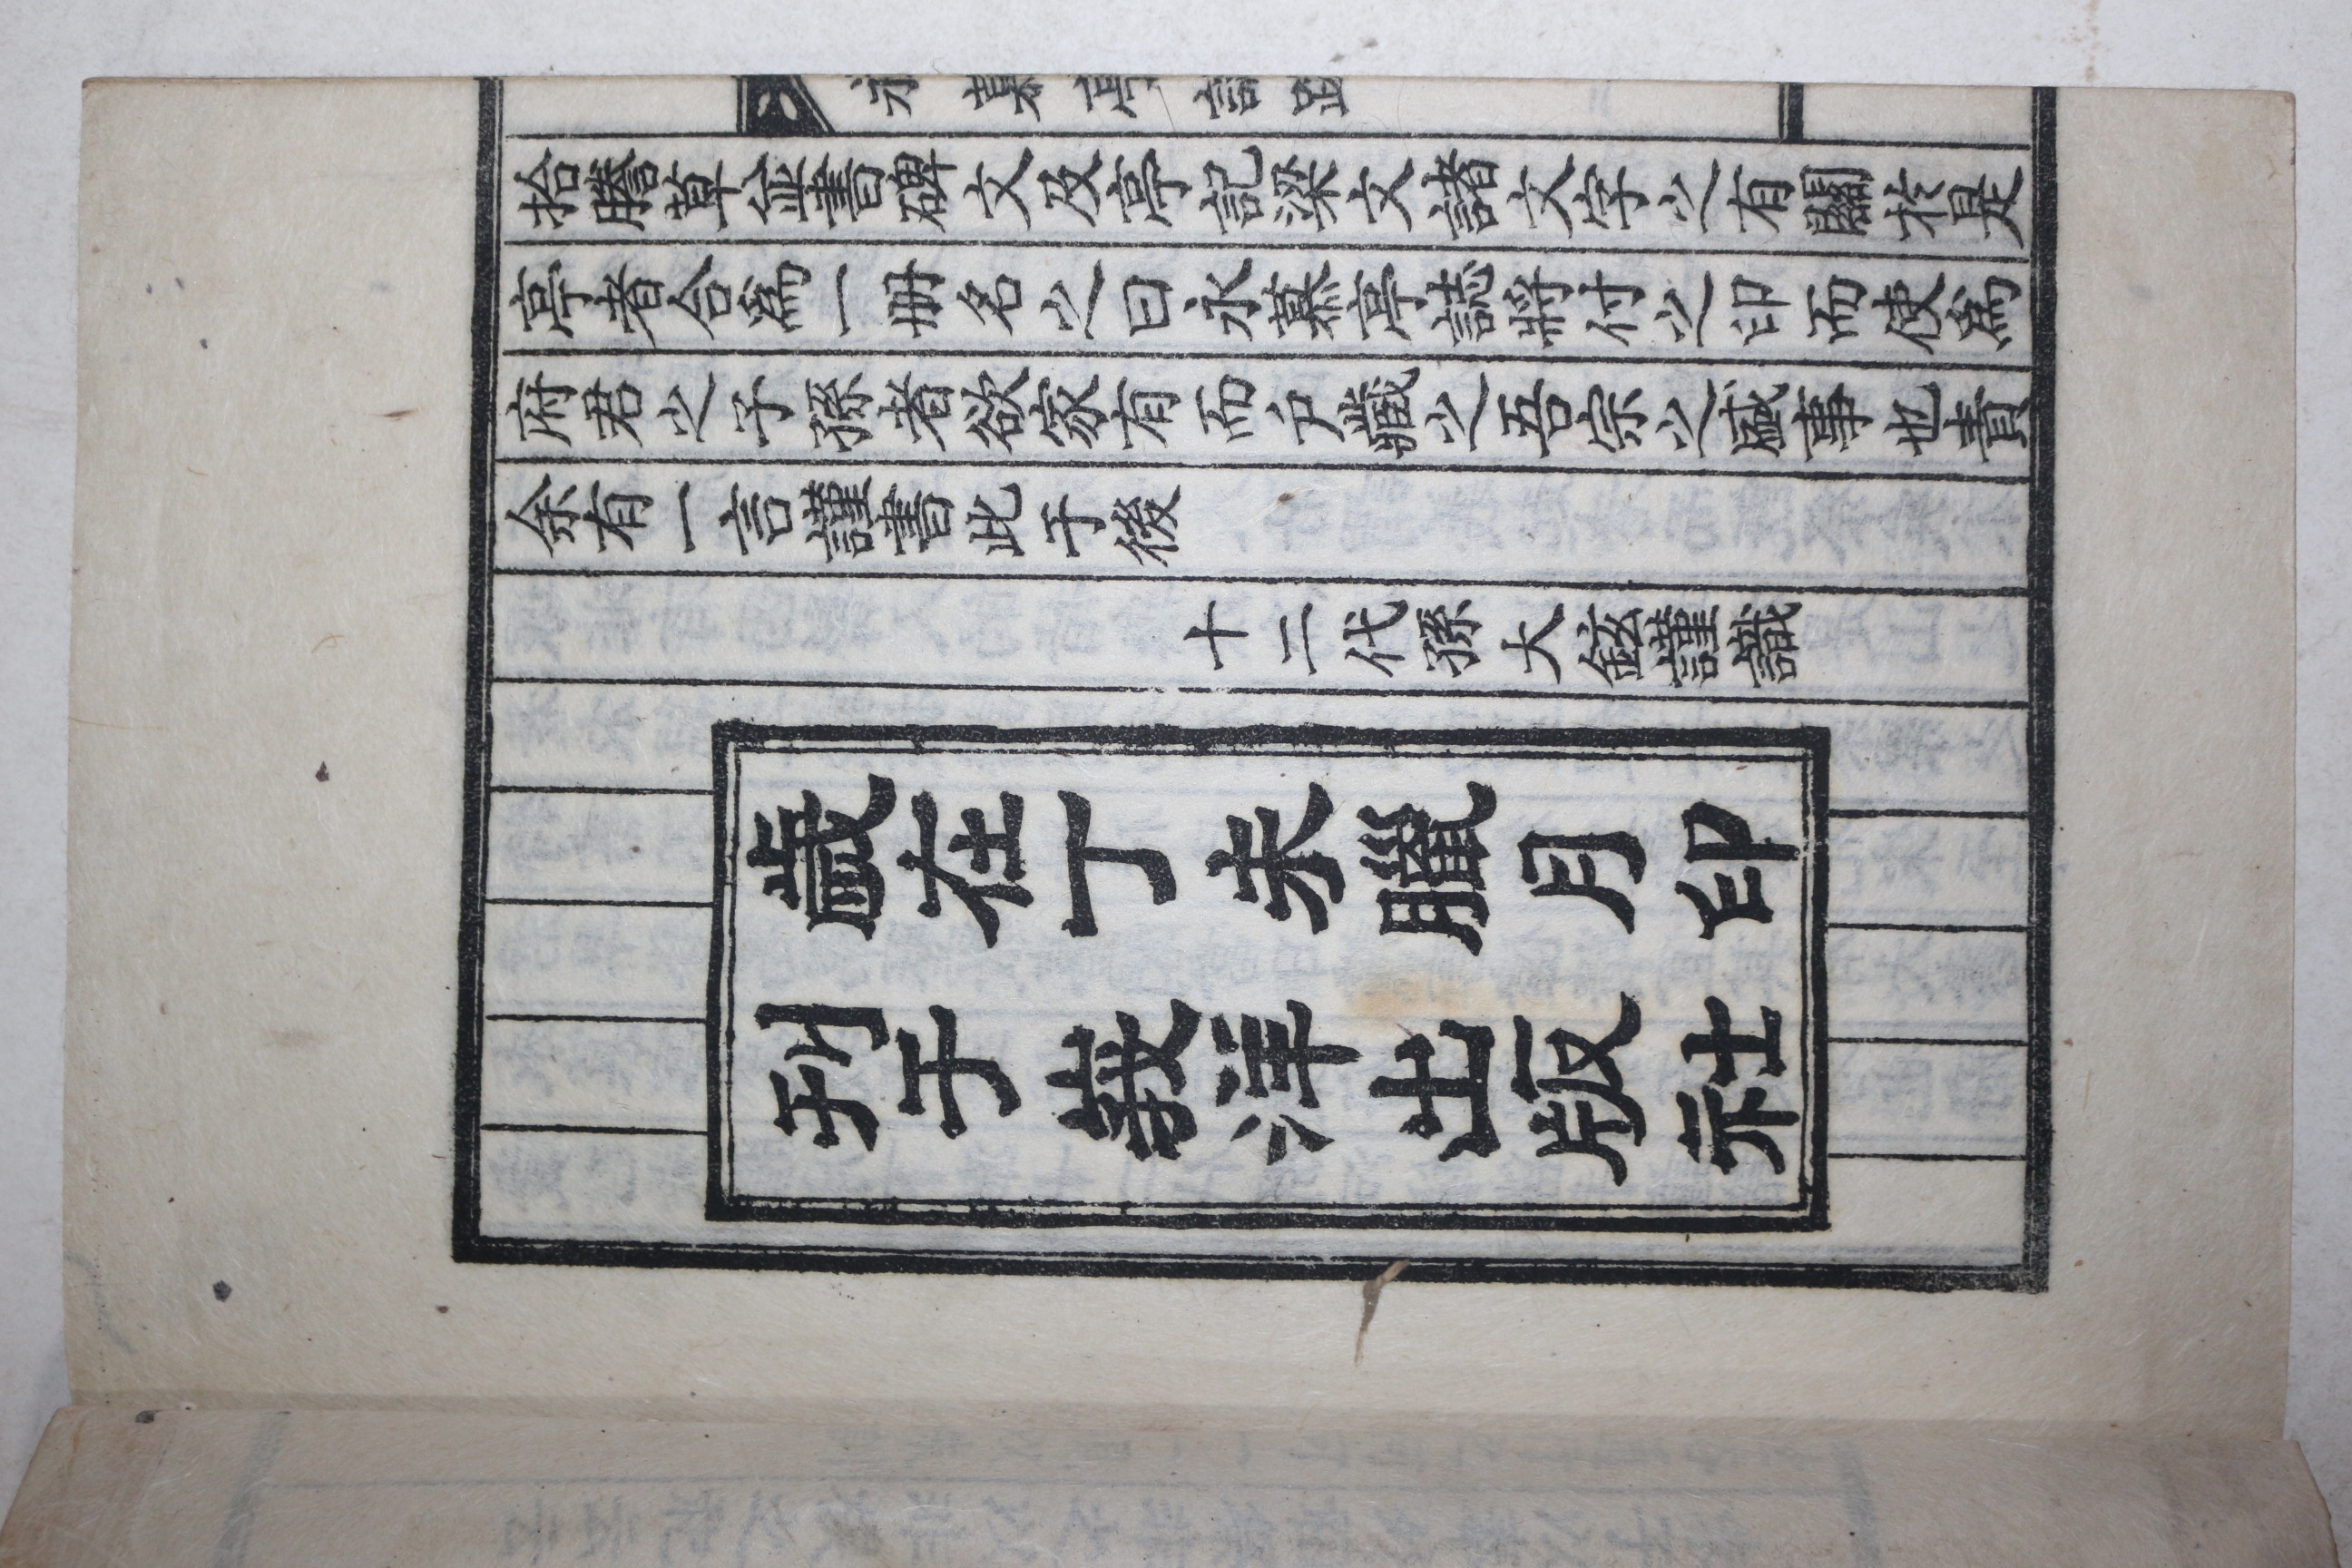 永慕亭誌
拾謄草並書碑文及亭記梁文諸文字之有關於是
亭者合爲一册名之曰永慕亭誌將付之印而使爲
府君之子孫者欲家有而戶藏之吾宗之盛事也責
余有一言謹書此于後
十二代孫大鉉謹識
歲在丁未臘月印
刊于峩洋出版社